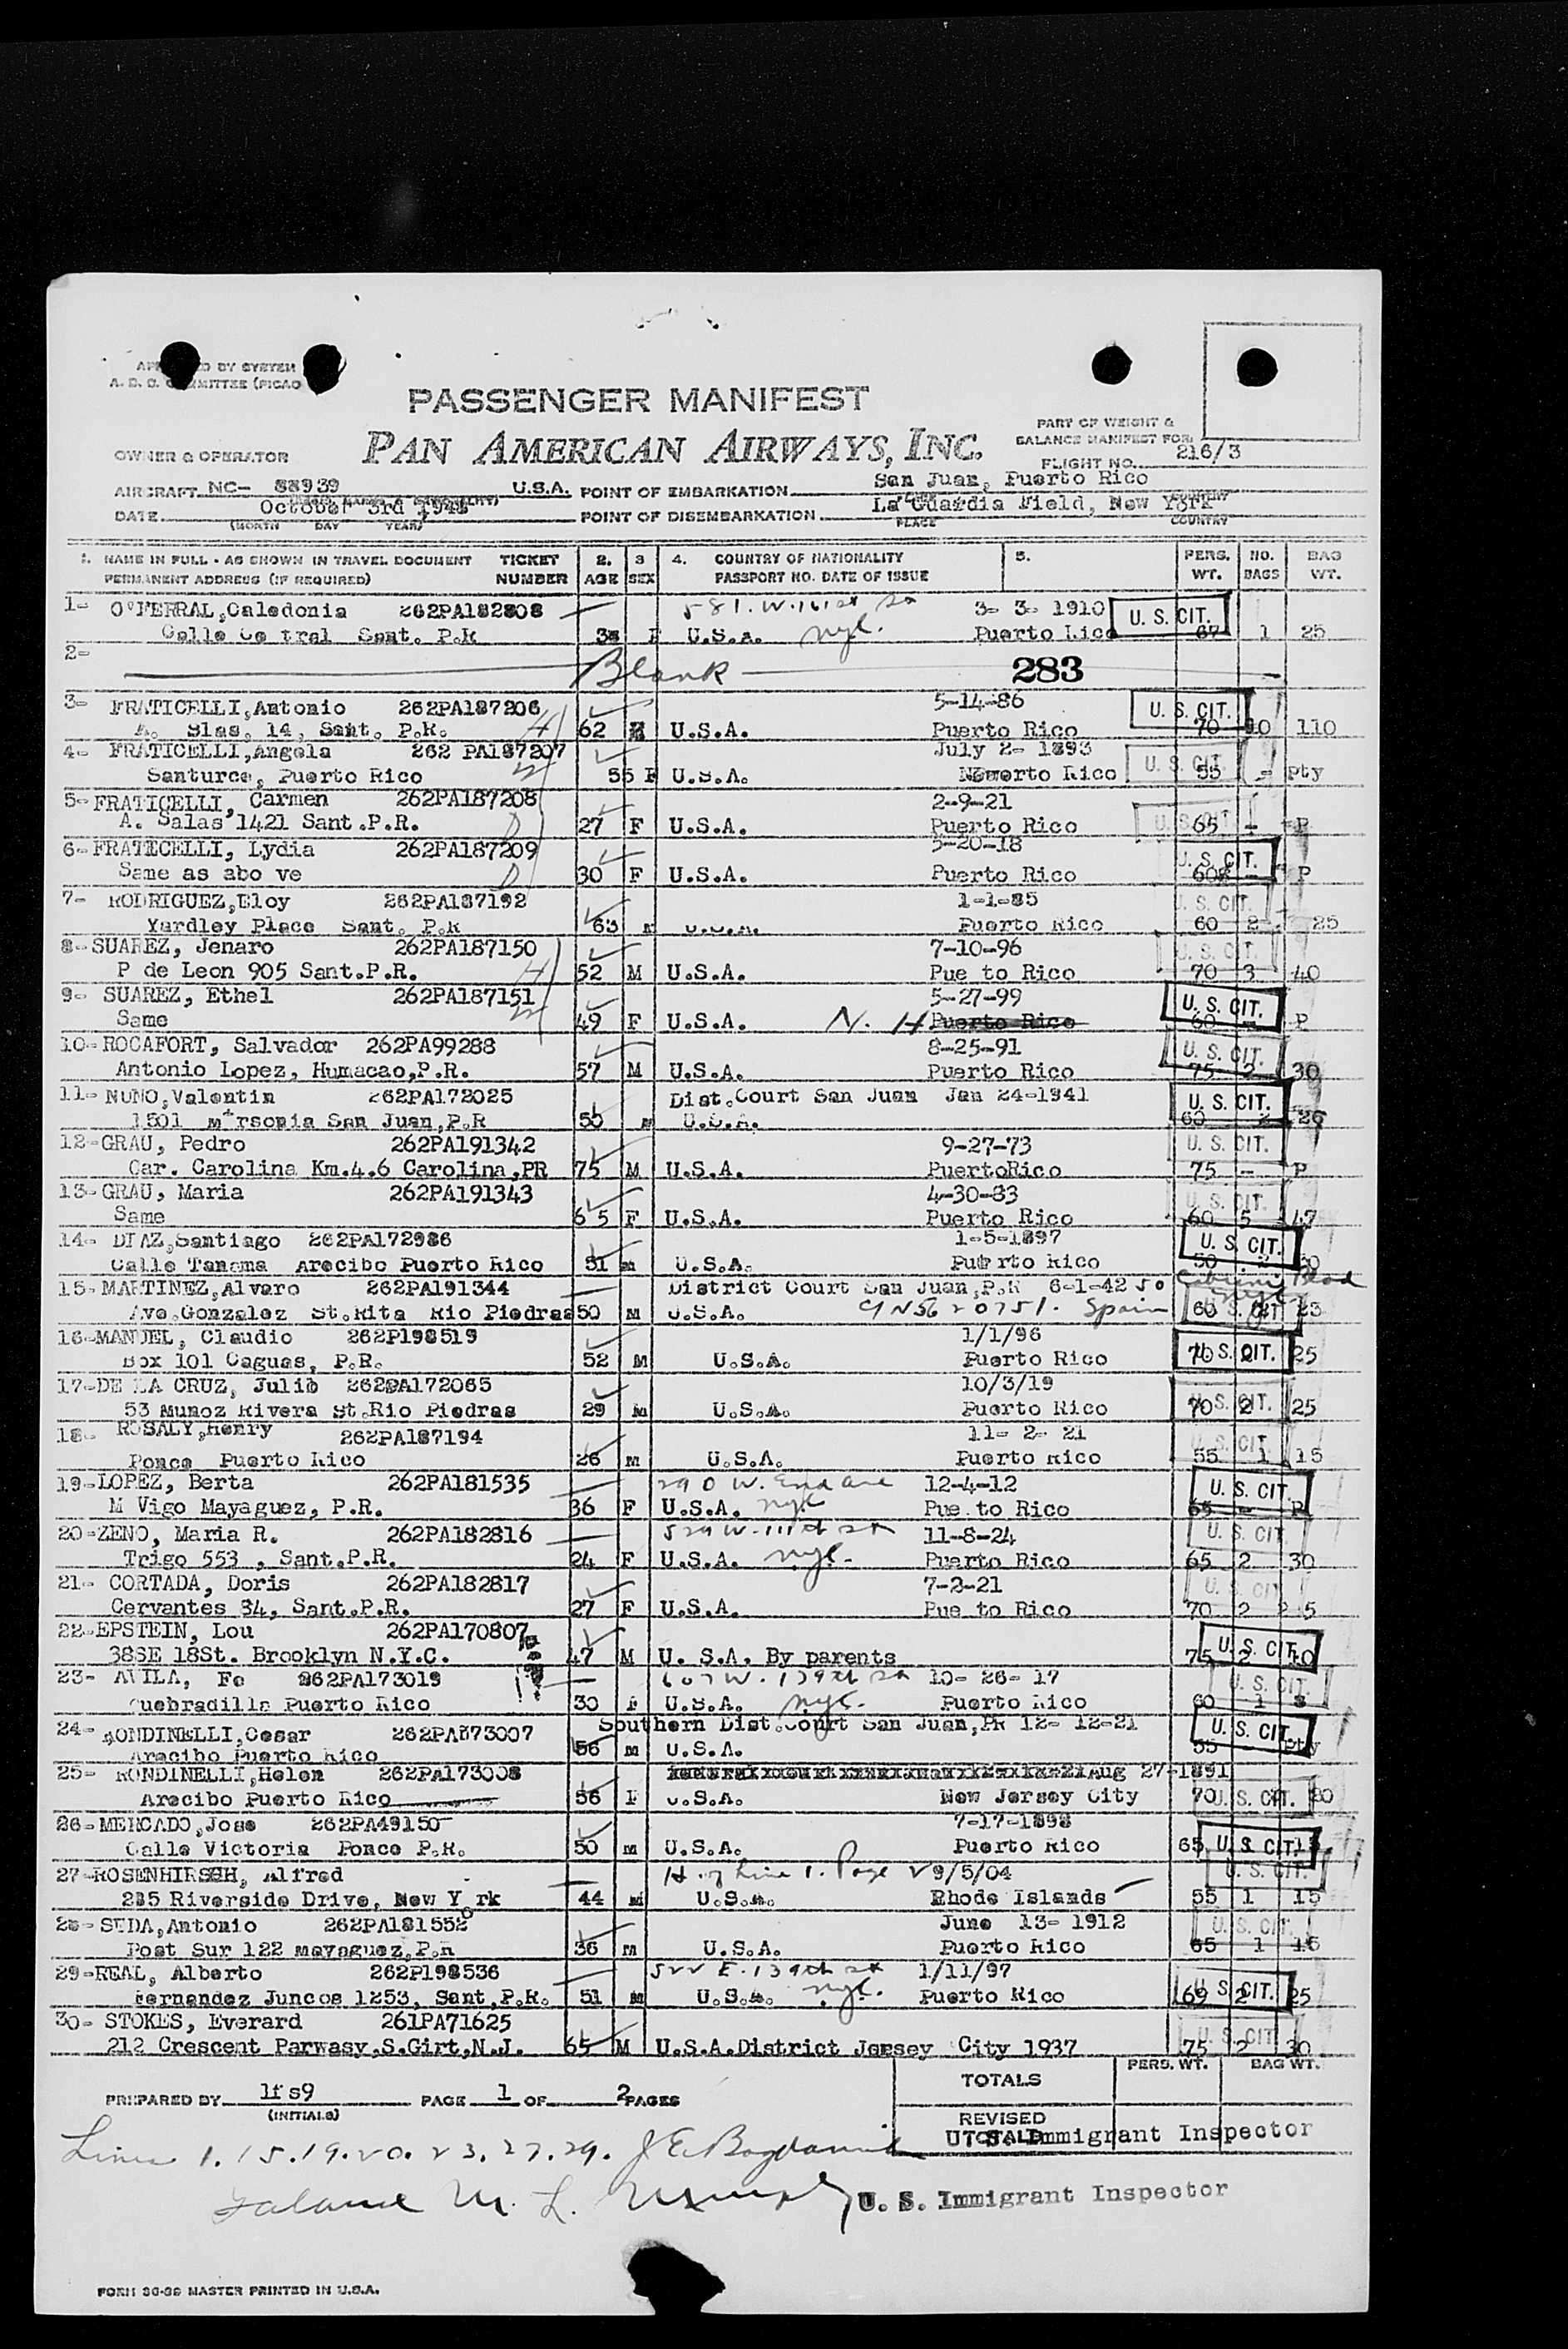 APP ED BY SYSTEM
A. D. C. COMMITTEE (PICAO
PASSENGER MANIFEST
PAN AMERICAN AIRWAYS, INC.
PART OF WEIGHT &
BALANCE MANIFEST FOR
OWNER & OPERATOR
FLIGHT NO. 216/3
AIRCRAFT NC- 88939 U.S.A. POINT OF EMBARKATION San Juan, Puerto Rico
DATE October 3rd 1948 POINT OF DISEMBARKATION La Guardia Field, New York
(MONTH DAY YEAR) PLACE COUNTRY
1. NAME IN FULL - AS SHOWN IN TRAVEL DOCUMENT TICKET 2. 3 4. COUNTRY OF NATIONALITY 5. PERS. NO. BAG
PERMANENT ADDRESS (IF REQUIRED) NUMBER AGE SEX PASSPORT NO. DATE OF ISSUE WT. BAGS WT.
1- O'FERRAL,Caledonia 262PA182808 581. W. 161 st St 3- 3- 1910 U. S. CIT.
Calle Ce tral Sant. P.R F U.S.A. nyc. Puerto Rico 67 1 25
2- Blank 283
3- FRATICELLI,Antonio 262PA187206 H 5-14-86 U. S. CIT.
A. Slas, 14, Sant. P.R. 62 U.S.A. Puerto Rico 70 10 110
4- FRATICELLI,Angela 262 PA187207 W July 2- 1893 U. S. CIT.
Santurce, Puerto Rico 55 F U.S.A. Rico 55 - Pty
5- FRATICELLI, Carmen 262PA187208 D 2-9-21 U. S. CIT.
A. Salas 1421 Sant.P.R. 27 F U.S.A. Puerto Rico 65 - P
6- FRATICELLI, Lydia 262PA187209 D 5-20-18 U. S. CIT.
Same as abo ve 30 F U.S.A. Puerto Rico 60 - P
7- RODRIGUEZ,Eloy 262PA187192 1-1-85 U. S. CIT.
Yardley Place Sant. P.R 63 M U.S.A. Puerto Rico 60 2 25
8- SUAREZ, Jenaro 262PA187150 H 7-10-96 U. S. CIT.
P de Leon 905 Sant.P.R. 52 M U.S.A. Pue to Rico 70 3 40
9- SUAREZ, Ethel 262PA187151 W 5-27-99 U. S. CIT.
Same 49 F U.S.A. N. H Puerto Rico 60 - P
10- ROCAFORT, Salvador 262PA99288 8-25-91 U. S. CIT.
Antonio Lopez, Humacao,P.R. 57 M U.S.A. Puerto Rico 75 2 30
11- NUNO,Valentin 262PA172025 Dist.Court San Juan Jan 24-1941 U. S. CIT.
1501 San Juan,P.R 50 M U.S.A. 60 2 26
12- GRAU, Pedro 262PA191342 9-27-73 U. S. CIT.
Car. Carolina Km.4.6 Carolina,PR 75 M U.S.A. PuertoRico 75 - P
13- GRAU, Maria 262PA191343 4-30-83 U. S. CIT.
Same 65 F U.S.A. Puerto Rico 60 5 47
14- DIAZ,Santiago 262PA172986 1-5-1897 U. S. CIT.
Calle Tanama Arecibo Puerto Rico 51 M U.S.A. Pue rto Rico 50 2
15- MARTINEZ,Alvaro 262PA191344 District Court San Juan,P.R 6-1-42 50 Cabrini Blvd
Ave.Gonzalez St.Rita Rio Piedras 50 M U.S.A. CN5620751. Spain 60 U. S. CIT. 23
16- MANUEL, Claudio 262P198519 1/1/96
Box 101 Caguas, P.R. 52 M U.S.A. Puerto Rico 70 U. S. CIT. 25
17- DE LA CRUZ, Julio 262PA172065 10/3/19
53 Munoz Rivera St.Rio Piedras 29 M U.S.A. Puerto Rico 70 2 U. S. CIT. 25
18- ROSALY,Henry 262PA187194 11- 2- 21
Ponce Puerto Rico 26 M U.S.A. Puerto Rico 55 1 U. S. CIT. 15
19- LOPEZ, Berta 262PA181535 290 W. End Ave 12-4-12 U. S. CIT.
M Vigo Mayaguez, P.R. 36 F U.S.A. nyc Pue to Rico 65 - P
20- ZENO, Maria R. 262PA182816 529 W. 111th St 11-8-24 U. S. CIT
Trigo 553 , Sant.P.R. 24 F U.S.A. nyc. Puerto Rico 65 2 30
21- CORTADA, Doris 262PA182817 7-2-21 U. S. CIT
Cervantes 34, Sant.P.R. 27 F U.S.A. Pue to Rico 70 2 25
22- EPSTEIN, Lou 262PA170807
38SE 18St. Brooklyn N.Y.C. 47 M U. S.A. By parents 75 2 U. S. CIT. 40
23- AVILA, Fe 262PA173019 607 W. 139th St 10- 26- 17 U. S. CIT.
Quebradilla Puerto Rico 30 F U.S.A. nyc. Puerto Rico 60 1 8
24- RONDINELLI,Cesar 262PA173007 Southern Dist.Court San Juan,PR 12- 12-21 U. S. CIT.
Arecibo Puerto Rico 56 M U.S.A. 55 - Pty
25- RONDINELLI,Helen 262PA173008 Aug 27-1891
Arecibo Puerto Rico 56 F U.S.A. New Jersey City 70 U. S. CIT. 80
26- MERCADO,Jose 262PA49150 7-17-1898
Calle Victoria Ponce P.R. 50 M U.S.A. Puerto Rico 65 U. S. CIT. 15
27- ROSENHIRSCH, Alfred H. of Line 1. Page 2 9/5/04 U. S. CIT.
235 Riverside Drive, New York 44 M U.S.A. Rhode Islands 55 1 15
28- SEDA,Antonio 262PA181552 June 13- 1912 U. S. CIT.
Post Sur 122 Mayaguez,P.R 36 M U.S.A. Puerto Rico 65 1 15
29- REAL, Alberto 262P198536 522 E. 139th St 1/11/97
Fernandez Juncos 1253, Sant,P.R. 51 M U.S.A. nyc. Puerto Rico 69 2 U. S. CIT. 25
30- STOKES, Everard 261PA71625 U. S. CIT
212 Crescent Parwasy,S.Girt,N.J. 65 M U.S.A.District Jersey City 1937 75 2 30
TOTALS PERS. WT. BAG WT.
PREPARED BY lfs9 PAGE 1 OF 2 PAGES
(INITIALS)
REVISED
TOTALS U. S. Immigrant Inspector
Lines 1. 15. 19. 20. 23. 27. 29.
Balance M. L. U. S. Immigrant Inspector
FORM 36-39 MASTER PRINTED IN U.S.A.